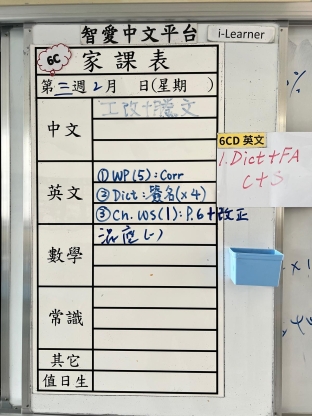 智愛中文平台
i-Learner
6C
家課表
第三週2月 日(星期 )
中文
工改+謄文
英文
①WP(5):Corr
②Dict:簽名(x4)
③Cn. WS(1):P.6+改正
數學
混座(-)
常識
其它
值日生
6CD 英文
1. Dict+FA
C+S